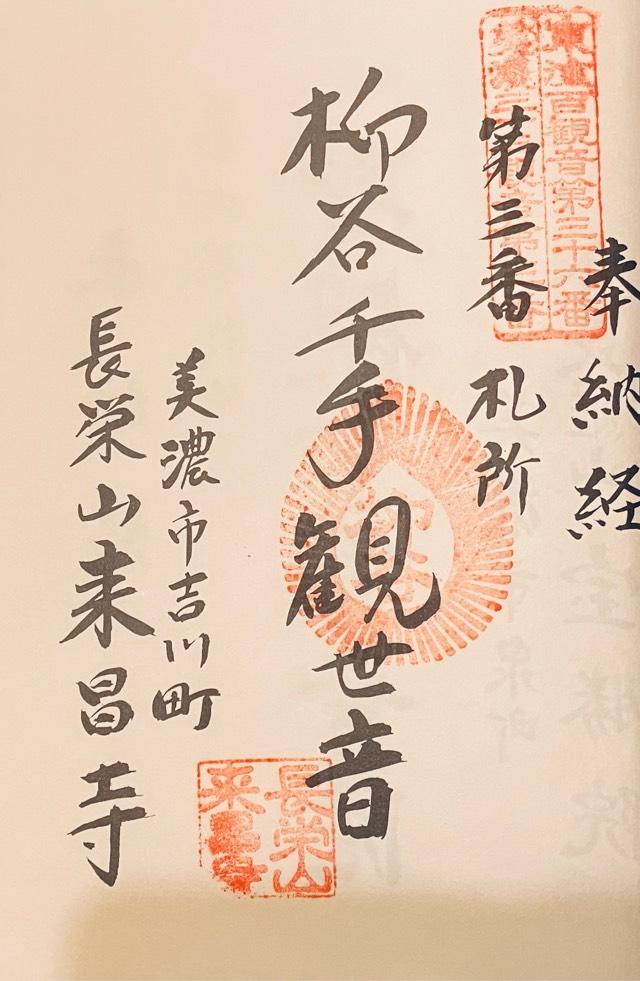 奉納経
東海百観音第三十六番
美濃三十三観音第三番
第三番 札所
柳谷千手観世音
美濃市吉川町
長栄山来昌寺
長栄山
来昌寺